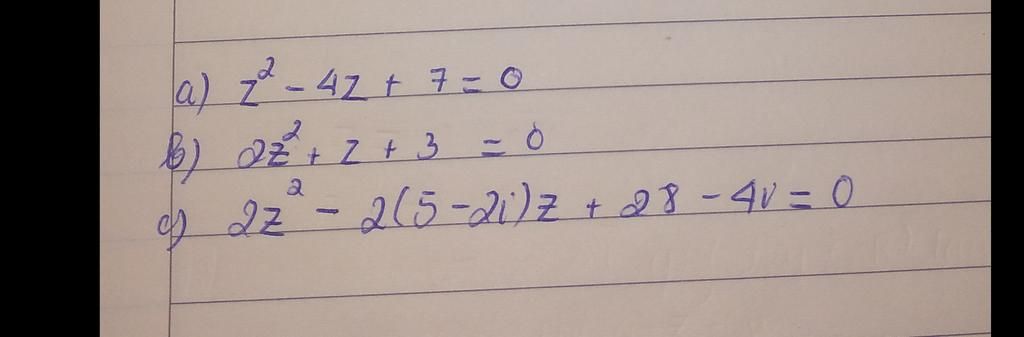 a) z² - 4z + 7 = 0
b) 2z² + z + 3 = 0
c) 2z² - 2(5-2i)z + 28 - 4i = 0